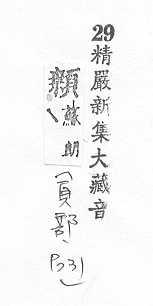 29精嚴新集大藏音
蘇朗(頁部、P231)